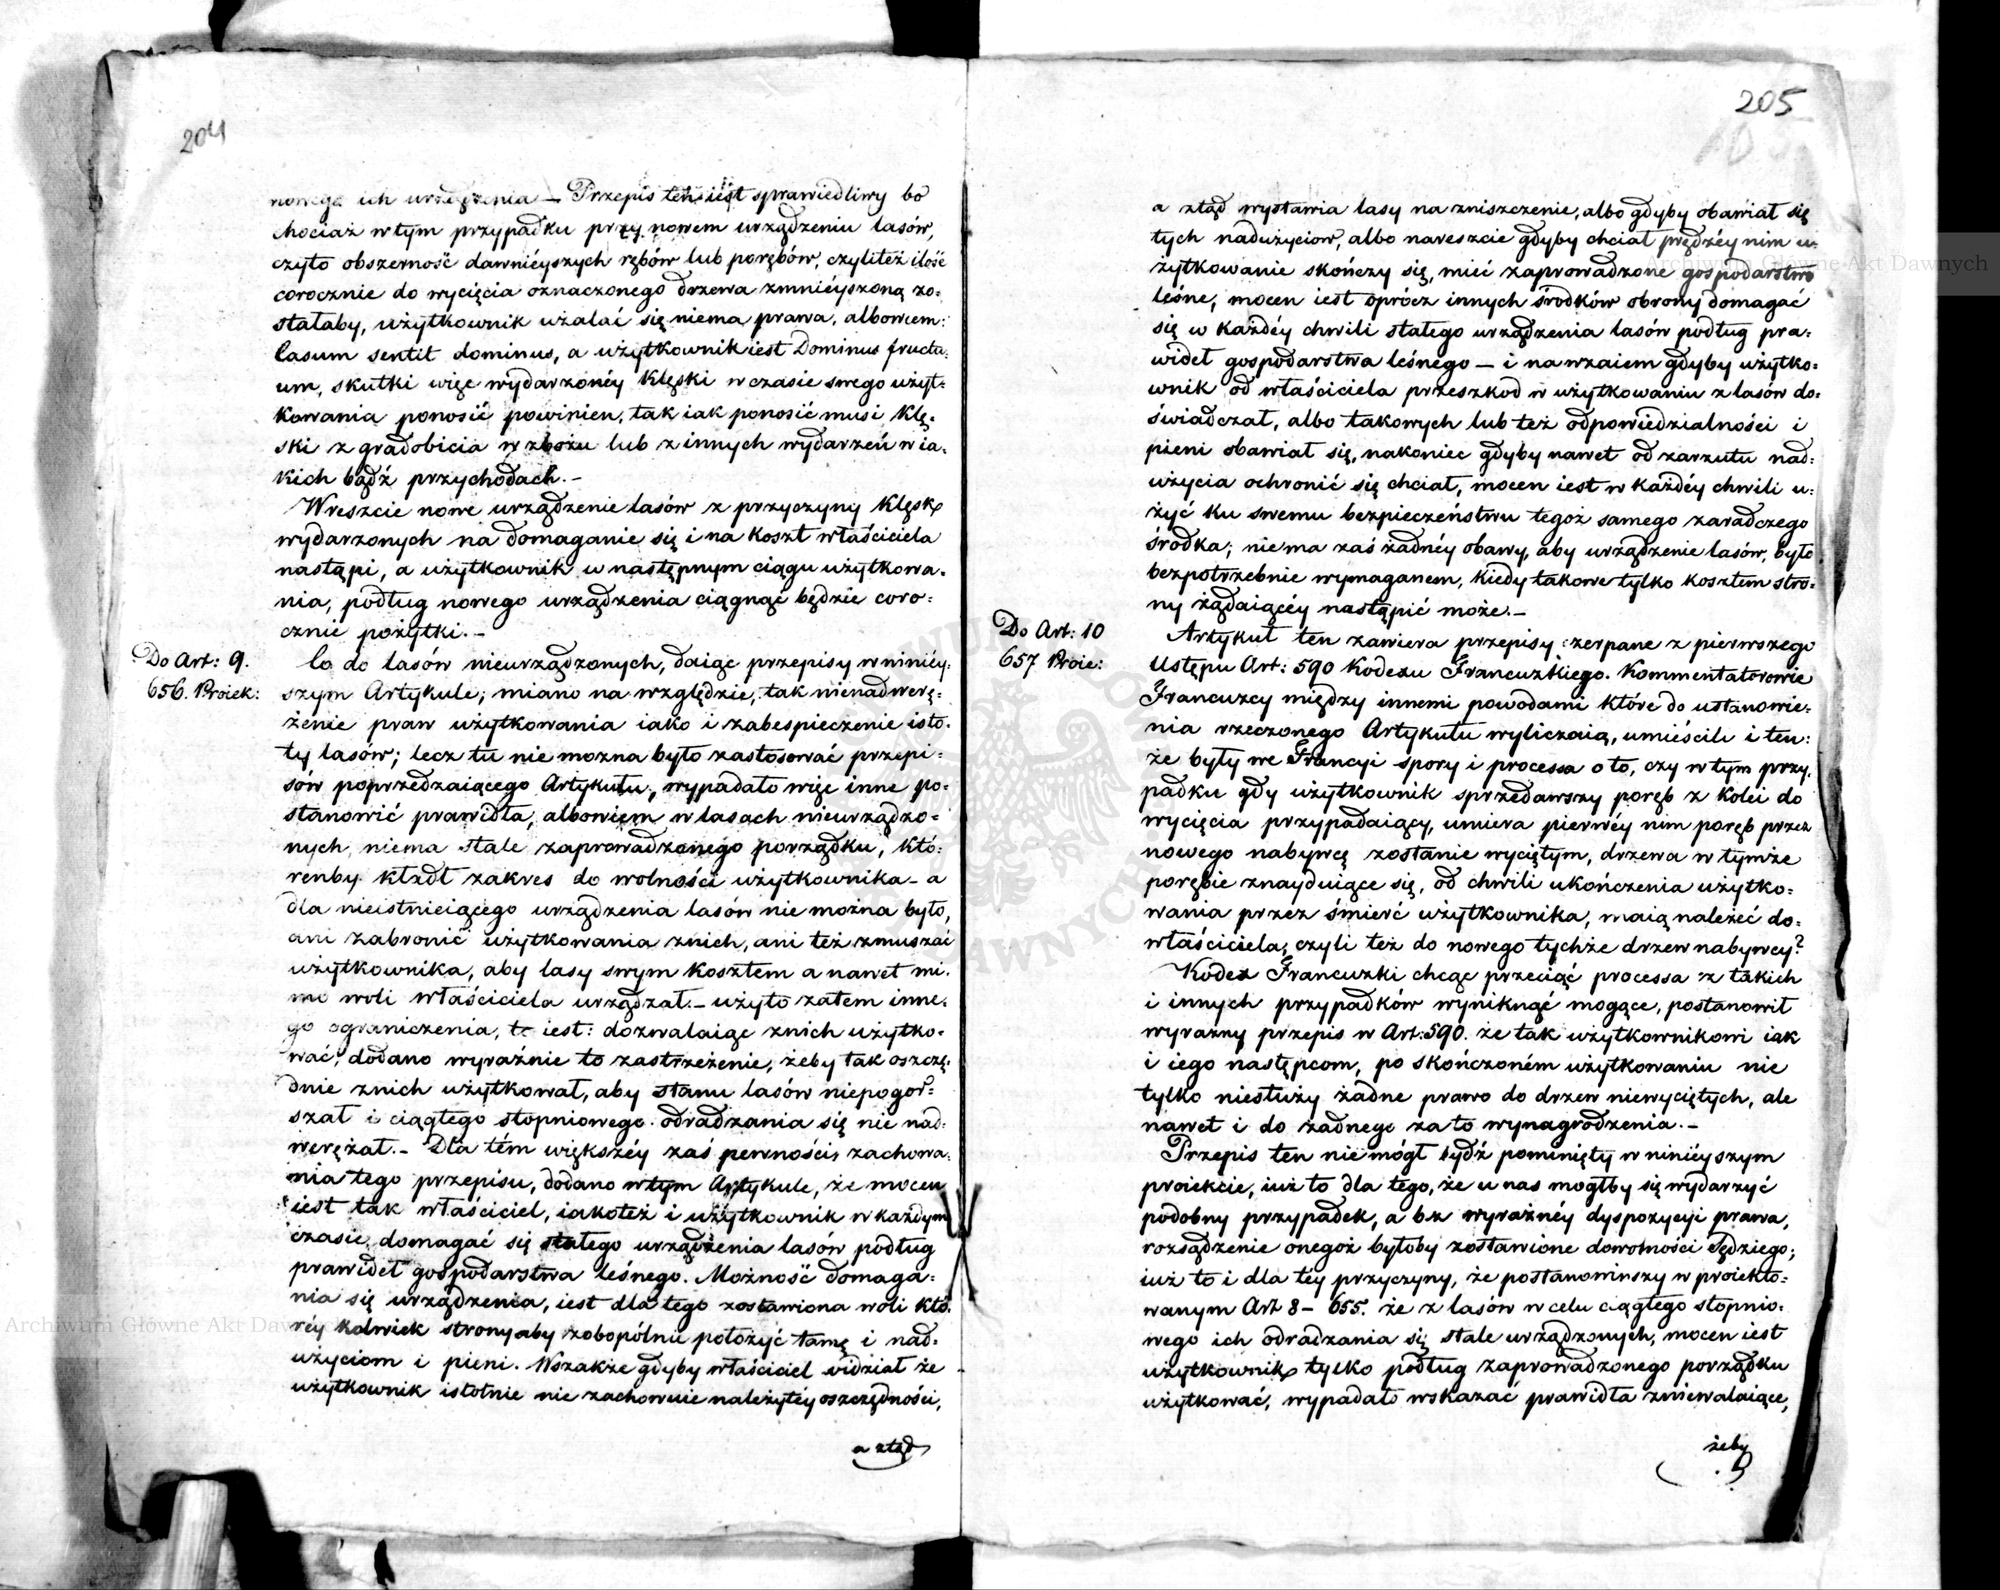 204
nowego ich urządzenia — Przepis ten iest sprawiedliwy bo
chociaż w tym przypadku przy nowem urządzeniu lasów,
czyto obszerność dawniéyszych rębów lub porębów, czyliteż ilość
corocznie do wycięcia oznaczonego drzewa zmniéyszoną zo=
stałaby, użytkownik użalać się niema prawa, albowiem:
Casum sentit dominus, a użytkownik iest Dominus fructu=
um, skutki więc wydarzonéy klęski w czasie swego użyt=
kowania ponosić powinien, tak iak ponosić musi klę=
ski z gradobicia w zbożu lub z innych wydarzeń w ia=
kich bądź przychodach. —
Wreszcie nowe urządzenie lasów z przyczyny klęsk
wydarzonych na domaganie się i na koszt właściciela
nastąpi, a użytkownik w następnym ciągu użytkowa=
nia, podług nowego urządzenia ciągnąć będzie coro=
cznie pożytki. —
Do Art: 9.
656. Proiek:
Co do lasów nieurządzonych, daiąc przepisy w ninićy=
szym Artykule; miano na względzie, tak nienadwerę=
żenie praw użytkowania iako i zabespieczenie isto=
ty lasów; lecz tu nie można było zastosować przepi=
sów poprzedzaiącego Artykułu, wypadało więc inne po=
stanowić prawidła, albowiem w lasach nieurządzo=
nych, niema stale zaprowadzonego porządku, któ=
renby kładł zakres do wolności użytkownika — a
dla nieistnieiącego urządzenia lasów nie można było,
ani zabronić użytkowania znich, ani też zmuszać
użytkownika, aby lasy swym kosztem a nawet mi=
mo woli właściciela urządzał. — użyto zatem inne=
go ograniczenia, to iest: dozwalaiąc znich użytko=
wać, dodano wyraźnie to zastrzeżenie, żeby tak oszczę=
dnie znich użytkował, aby stanu lasów niepogor=
szał i ciągłego stopniowego odradzania się nie nad=
werężał. — Dla tém większéy zaś pewności, zachowa=
nia tego przepisu, dodano w tym Artykule, że mocen
iest tak właściciel, iakoteż i użytkownik w każdym
czasie, domagać się stałego urządzenia lasów podług
prawideł gospodarstwa leśnego. Możność domaga=
nia się urządzenia, iest dla tego zostawiona woli któ=
réy kolwiek strony aby zobopólnie położyć tamę i nad=
użyciom i pieni. Wszakże gdyby właściciel widział że
użytkownik istotnie nie zachowuie należytéy oszczędności,
a ztąd
205
a ztąd wystawia lasy na zniszczenie, albo gdyby obawiał się
tych nadużyciow, albo nareszcie gdyby chciał prędzéy nim u=
żytkowanie skończy się, mieć zaprowadzone gospodarstwo
leśne, mocen iest oprócz innych środków obrony domagać
się w każdéy chwili stałego urządzenia lasów podług pra=
wideł gospodarstwa leśnego — i nawzaiem gdyby użytko=
wnik od właściciela przeszkod w użytkowaniu z lasów do=
świadczał, albo takowych lub też odpowiedzialności i
pieni obawiał się, nakoniec gdyby nawet od zarzutu nad=
użycia ochronić się chciał, mocen iest w każdéy chwili u=
żyć ku swemu bezpieczeństwu tegoż samego zaradczego
środka; nie ma zaś żadnéy obawy, aby urządzenie lasów, było
bezpotrzebnie wymaganem, kiedy takowe tylko kosztem stro=
ny żądaiącéy nastąpić może. —
Do Art: 10
657 Proie:
Artykuł ten zawiera przepisy czerpane z pierwszego
Ustępu Art: 590 Kodexu Francuzkiego. Kommentatorowie
Francuzcy między innemi powodami które do ustanowie=
nia rzeczonego Artykułu wyliczaią, umieścili i ten:
że były we Francyi spory i processa o to, czy w tym przy=
padku gdy użytkownik sprzedawszy poręb z kolei do
wycięcia przypadaiący, umiera pierwéy nim poręb przez
nowego nabywcę zostanie wyciętym, drzewa w tymże
porębie znayduiące się, od chwili ukończenia użytko=
wania przez śmierć użytkownika, maią należeć do=
właściciela, czyli też do nowego tychże drzew nabywcy?
Kodex Francuzki chcąc przeciąć processa z takich
i innych przypadków wyniknąć mogące, postanowił
wyraźny przepis w Art: 590. że tak użytkownikowi iak
i iego następcom, po skończoném użytkowaniu nie
tylko niesłuży żadne prawo do drzew niewyciętych, ale
nawet i do żadnego za to wynagrodzenia. —
Przepis ten nie mógł bydź pominięty w ninićyszym
proiekcie, iuż to dla tego, że u nas mogłby się wydarzyć
podobny przypadek, a bez wyraźnéy dyspozycyi prawa,
rozsądzenie onegoż byłoby zostawione dowolności Sędziego;
iuż to i dla téy przyczyny, że postanowiwszy w proiekto=
wanym Art 8 — 655. że z lasów w celu ciągłego stopnio=
wego ich odradzania się stale urządzonych, mocen iest
użytkownik tylko podług zaprowadzonego porządku
użytkować, wypadało wskazać prawidła zniewalaiące,
żeby
Archiwum Główne Akt Dawnych
Archiwum Główne Akt Dawnych